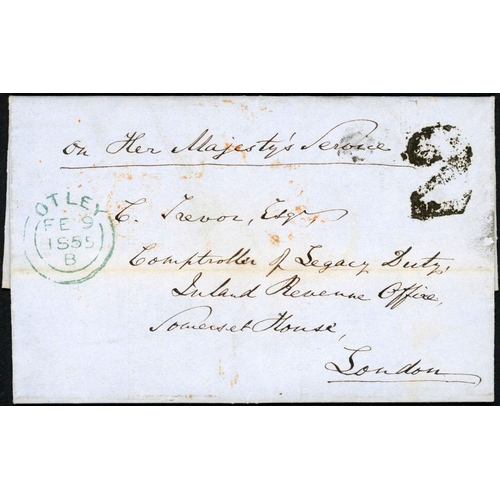 on Her Majesty's Service
2
OTLEY
FE 9
1855
B
C. Trevor, Esqr,
Comptroller of Legacy Duty,
Inland Revenue Office,
Somerset House,
London